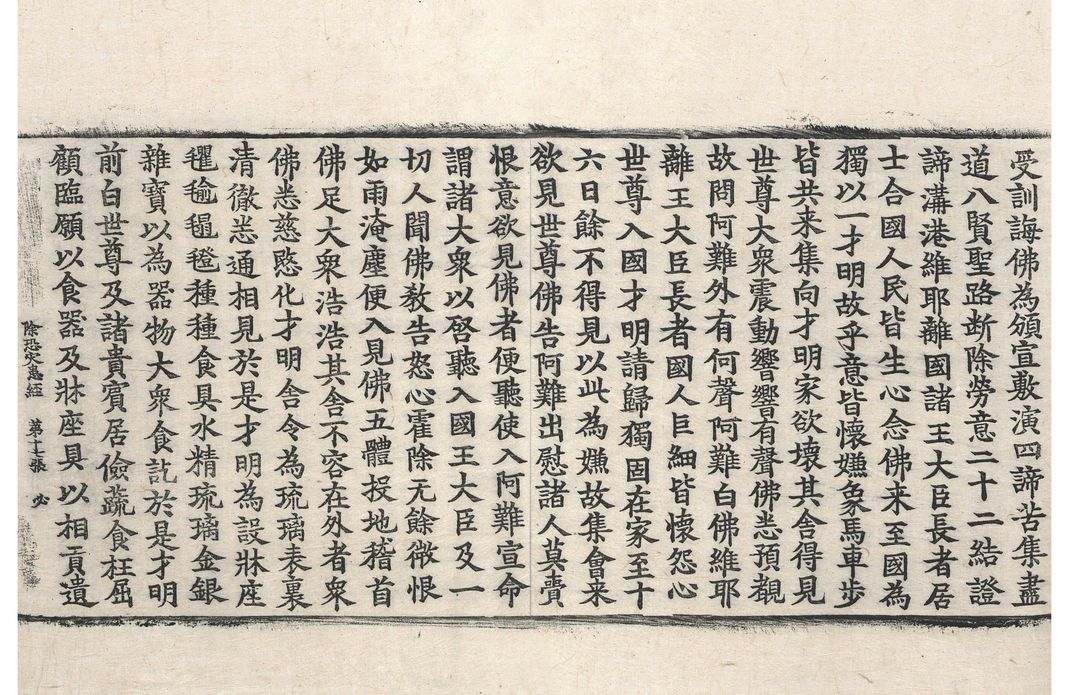 受訓誨佛為頒宣敷演四諦苦集盡
道八賢聖路断除勞意二十二結證
諦溝港維耶離國諸王大臣長者居
士合國人民皆生心念佛来至國為
獨以一才明故乎意皆懷嫌象馬車步
皆共来集向才明家欲壞其舎得見
世尊大衆震動響響有聲佛悉預覩
故問阿難外有何聲阿難白佛維耶
離王大臣長者國人巨細皆懷怨心
世尊入國才明請歸獨固在家至十
六日餘不得見以此為嫌故集會来
欲見世尊佛告阿難出慰諸人莫賷
恨意欲見佛者便聽使入阿難宣命
謂諸大衆以啓聽入國王大臣及一
切人聞佛教告怒心霍除无餘微恨
如雨淹塵便入見佛五體投地稽首
佛足大衆浩浩其舎不容在外者衆
佛悉慈愍化才明舎令為琉璃表裏
清徹悉通相見於是才明為設牀座
氍毹毾㲪種種食具水精琉璃金銀
雜寶以為器物大衆食訖於是才明
前白世尊及諸貴賓居儉蔬食枉屈
顧臨願以食器及牀座具以相貢遺
除恐灾患經 第十七張 必